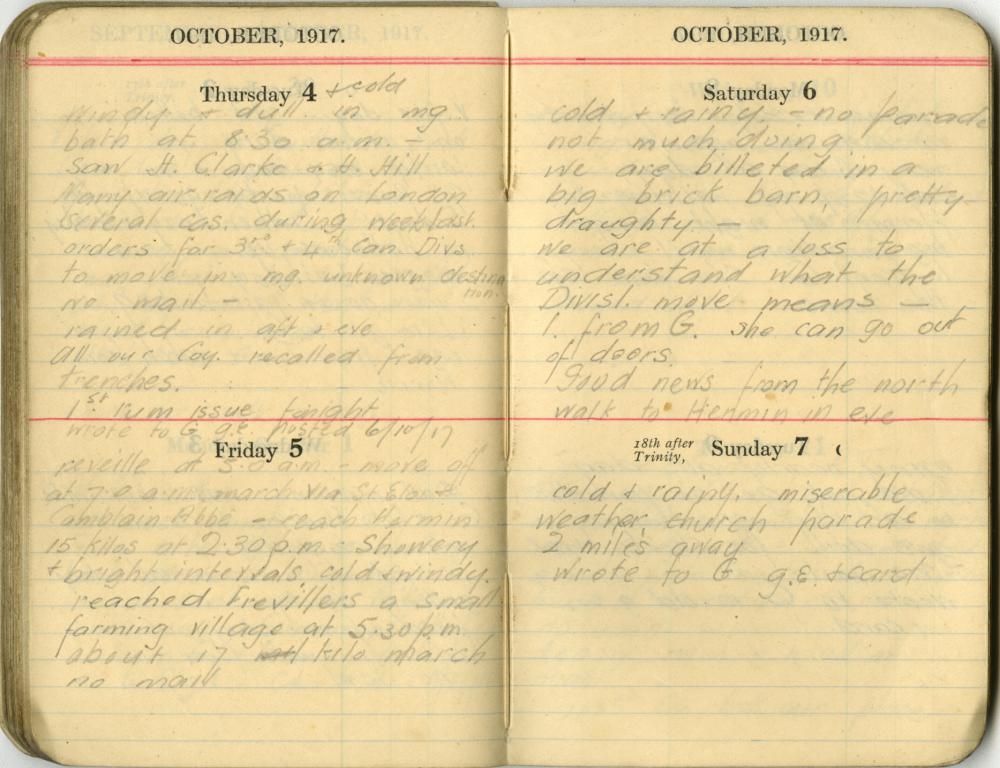 OCTOBER, 1917.
Thursday 4
+ cold
Windy + dull in mg.
bath at 8.30 a.m. —
Saw H. Clarke + H. Hill
Many air raids on London
Several cas. during week last.
orders for 3rd + 4th Can. Divs
to move in mg. unknown destina
tion.
no mail —
rained in aft + eve
All our Coy. recalled from
trenches.
1st rum issue tonight
wrote to G g.e. posted 6/10/17
Friday 5
reveille at 5.0 a.m. — move off
at 7.0 a.m. march via St Eloi +
Camblain Abbé — reach Hermin
15 kilos at 2.30 p.m. Showery
+ bright intervals, cold + windy.
reached Frevillers a small
farming village at 5.30 p.m.
about 17 kilo march
no mail
OCTOBER, 1917.
Saturday 6
cold + rainy. — no parade
not much doing
we are billeted in a
big brick barn, pretty
draughty —
we are at a loss to
understand what the
Divisl. move means —
1. from G. she can go out
of doors.
Good news from the north
walk to Hermin in eve
18th after
Trinity,
Sunday 7
cold + rainy. miserable
weather, church parade
2 miles away
wrote to G g.e. + card